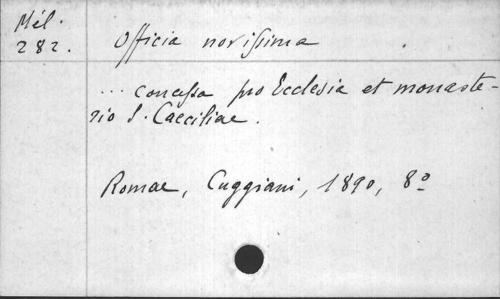 Mél.
282.
Officia novissima
... concessa pro Ecclesia et monaste-
rio S. Caeciliae.
Romae, Cuggiani, 1890, 8º